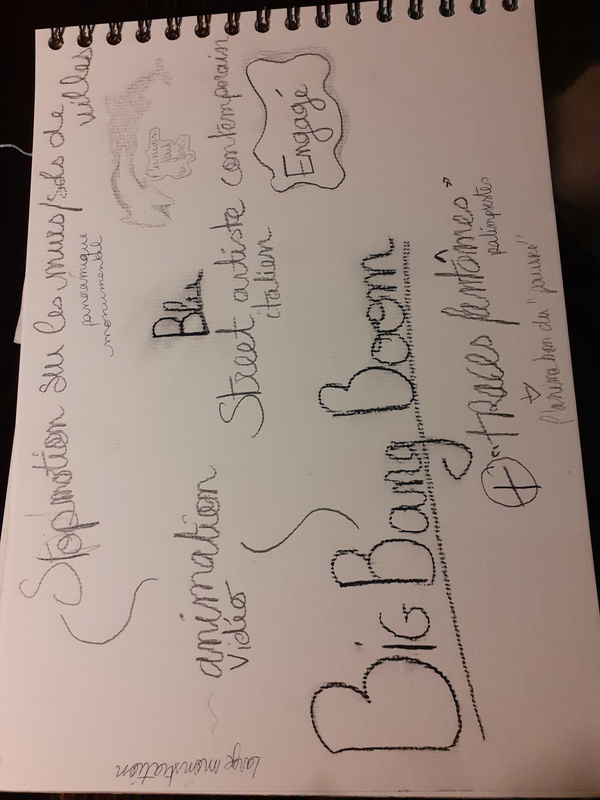 Stopmotion sur les murs/sols de
villes
panoramique
monumentale
Blu
Street artiste contemporain
italien
Engagé
animation
Vidéo
BIG Bang Boom
+ "traces fantômes"
palimpsestes
l'animation du "passé"